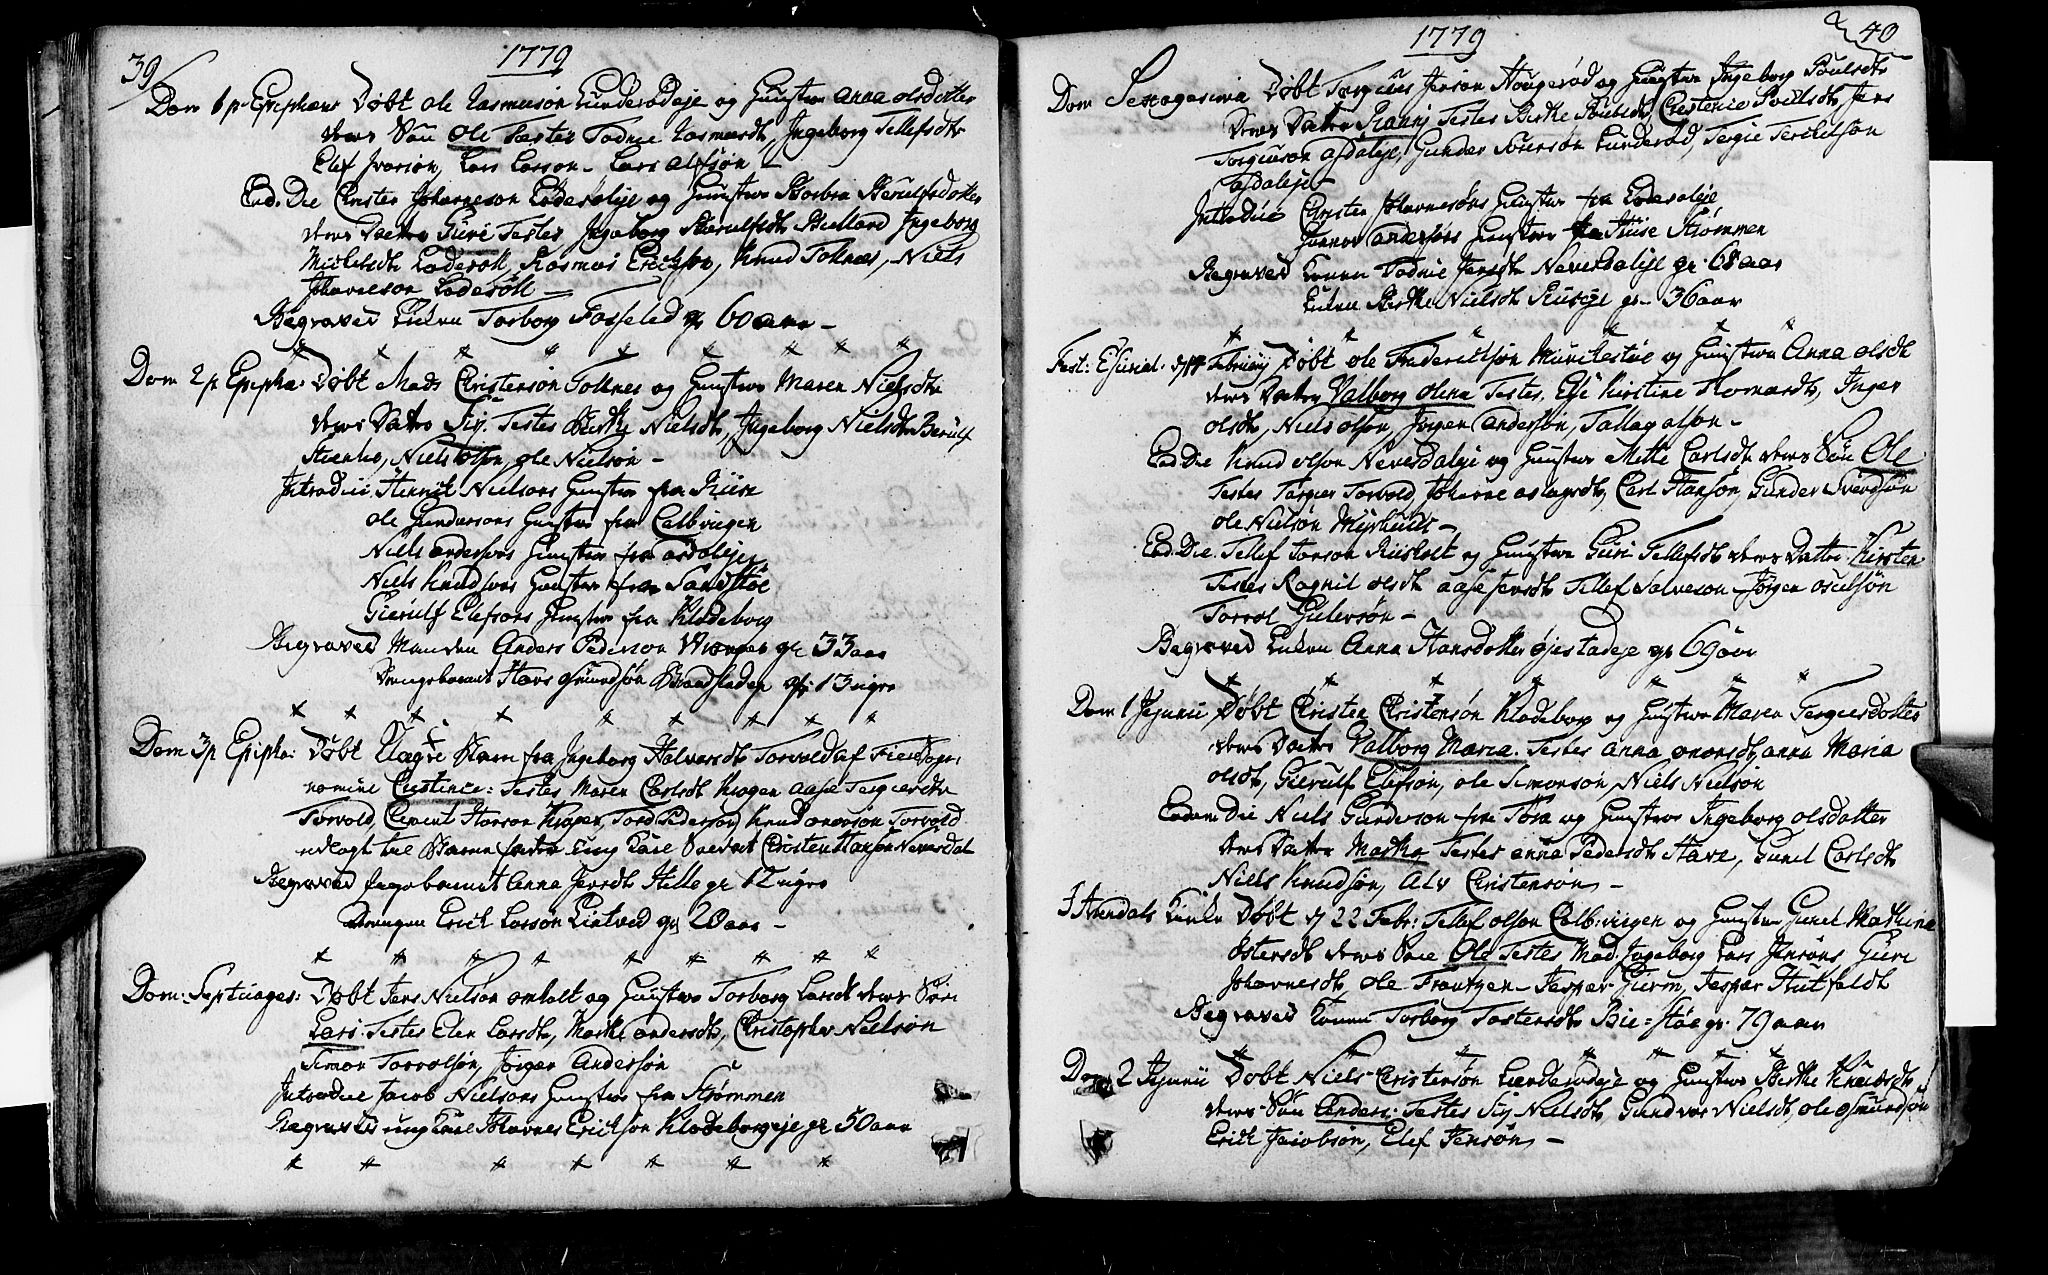 39
1779
Dom 1 p. Epiphan: Døbt Ole Rasmusøn Lunderødeje og Hustru Anna Olsdatter
deres Søn Ole Testes Todnie Rasmusdt, Ingeborg Tellefsdt
Elef Iversøn, Lars Larsøn, Lars Alfsøn
Eod. Die Christen Johannesøn Lodesøleje og Hustru Barbra Gierulfsdatter
deres Datter Guri Testes Ingeborg Gierulfsdt Ingeborg
Michelsdt Lodesøll, Rasmus Erichsøn, Knud Tolknes, Niels
Johannesøn Lodesøll
Begraved Enken Torborg Fosseled gr 60 aar
Dom 2 p Epipha: Døbt Mads Christensøn Tolknes og Hustru Maren Nielsdtr
deres Datter Siri. Testes Birthe Nielsdt, Ingeborg Nielsdt
Niels Olsøn, Ole Nielsøn
Introduc: Henrik Nielsøns Hustru fra
Ole Gundersøns Hustru fra Calbviigen
Niels Andersøns Hustru fra Asdaleje
Niels Knudsøns Hustru fra Sandstøe
Gierulf Elefsøns Hustru fra Klodeborg
Begraved Manden Anders Pedersøn gr 33 aar
Drengebarnet Hans Osmundsøn gr 13 uger
Dom 3 p Epipha: Døbt Uægte Barn fra Ingeborg Halvorsdt Torvold af
nomine Cristence: Testes Maren Carlsdt Krogen Aase Tergiersdtr
Torvold, Clement Hansøn Krogen, Tord Pedersøn, Knud Torvold
udlagt til Barne fader ung Karl Soldat Christen Hansøn Neversdal
Begraved Pigebarnet Anna Jensdt Helle gr 12 uger
Drengen Erich Larsøn Lietved gr 20 aar
Dom: Septuages: Døbt Jens Nielsøn Omholt og Hustru Torborg Larsdt deres Søn
Lars: Testes Elen Larsdt, Marthe Andersdt, Christopher Nielsøn
Simon Torvolsøn, Jørgen Andersøn
Introduc Jacob Nielsøns Hustru fra Strømmen
Begraved ung Karl Johannes Erichsøn Klodeborgeje gr 50 aar
1779
40
Dom Sexagesima Døbt Torgius Jensøn Hougerød og Hustru Ingeborg Poulsdt
deres Datter Ranni Testes Birthe Poulsdt, Christence Poulsdt, Jens
Torgiusøn Asdaleje, Gunder Sørensøn Lunderød, Tergie Terkelsøn
Asdaleje
Introduc Christen Johannesøns Hustru fra Lodesøleje
Gunner Andersøns Hustru fra Strømmen
Begraved Konen Todnie Jensdt Neversdaleje gr 68 aar
Enken Birthe Nielsdt gr 36 aar
Døbt Ole Fridrichsøn og Hustru Anna Olsdt
deres Datter Valborg Olena Testes, Else Kirstine Thomasdt, Inger
Olsdt, Niels Olsøn, Jørgen Andersøn, Tallag Olsøn
Eod. Die Knud Olsøn Neversdaleje og Hustru Mette Carlsdt deres Søn Ole
Testes Torgier Torvold, Johanne Aslagsdt, Carl Hansøn, Gunder
Ole Nielsøn
Eod. Die Tellef Torsøn Riisholt og Hustru Guri Tellefsdt deres Datter Kirsten
Testes Ragnil Olsdt Aase Jensdt Tellef Salvesøn Jørgen Osulsøn
Torvol
Begraved Enken Anna Hansdatter Øjestadeje gr 69 aar
Dom 1 Jejunii Døbt Christen Christensøn Klodeborg og Hustru Maren Tergiersdatter
deres Datter Valborg Maria. Testes Anna Anna Maria
Olsdt, Gierulf Elefsøn, Ole Simonsøn, Niels Nielsøn
Eodem Die Niels Gundersøn fra og Hustru Ingeborg Olsdatter
deres Datter Marthe, Testes Anna Pedersdt Gunel Carlsdt
Niels Knudsøn, Alv Christensøn
I Arendals Kirke Døbt d 22 Febr: Tellef Olsøn Calbviigen og Hustru Gunel Mathina
deres Søn Ole Testes Mad. Ingeborg Lars Jensøns Guri
Johannesdt, Ole Frantzen Jesper Jesper Huitfeldt
Begraved Konen Torborg Tostensdt Bie-støe gr. 79 aar
Dom 2 Jejunii Døbt Niels Christensøn Lunderødeje og Hustru Birthe Knudsdt
deres Søn Anders: Testes Siri Nielsdt, Gundvor Nielsdt, Ole Osmundsøn
Erich Jacobsøn, Elef Jensøn